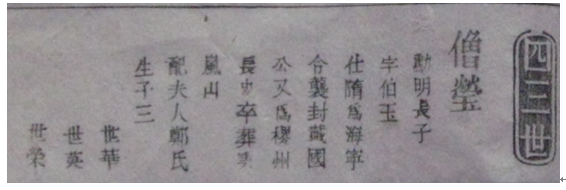 四三世
僧瑩
勳明長子
字伯玉
仕隋為海寧
令襲封戴國
公又為穆州
長史卒葬
嵐山
配夫人鄭氏
生子三
世華
世英
世榮